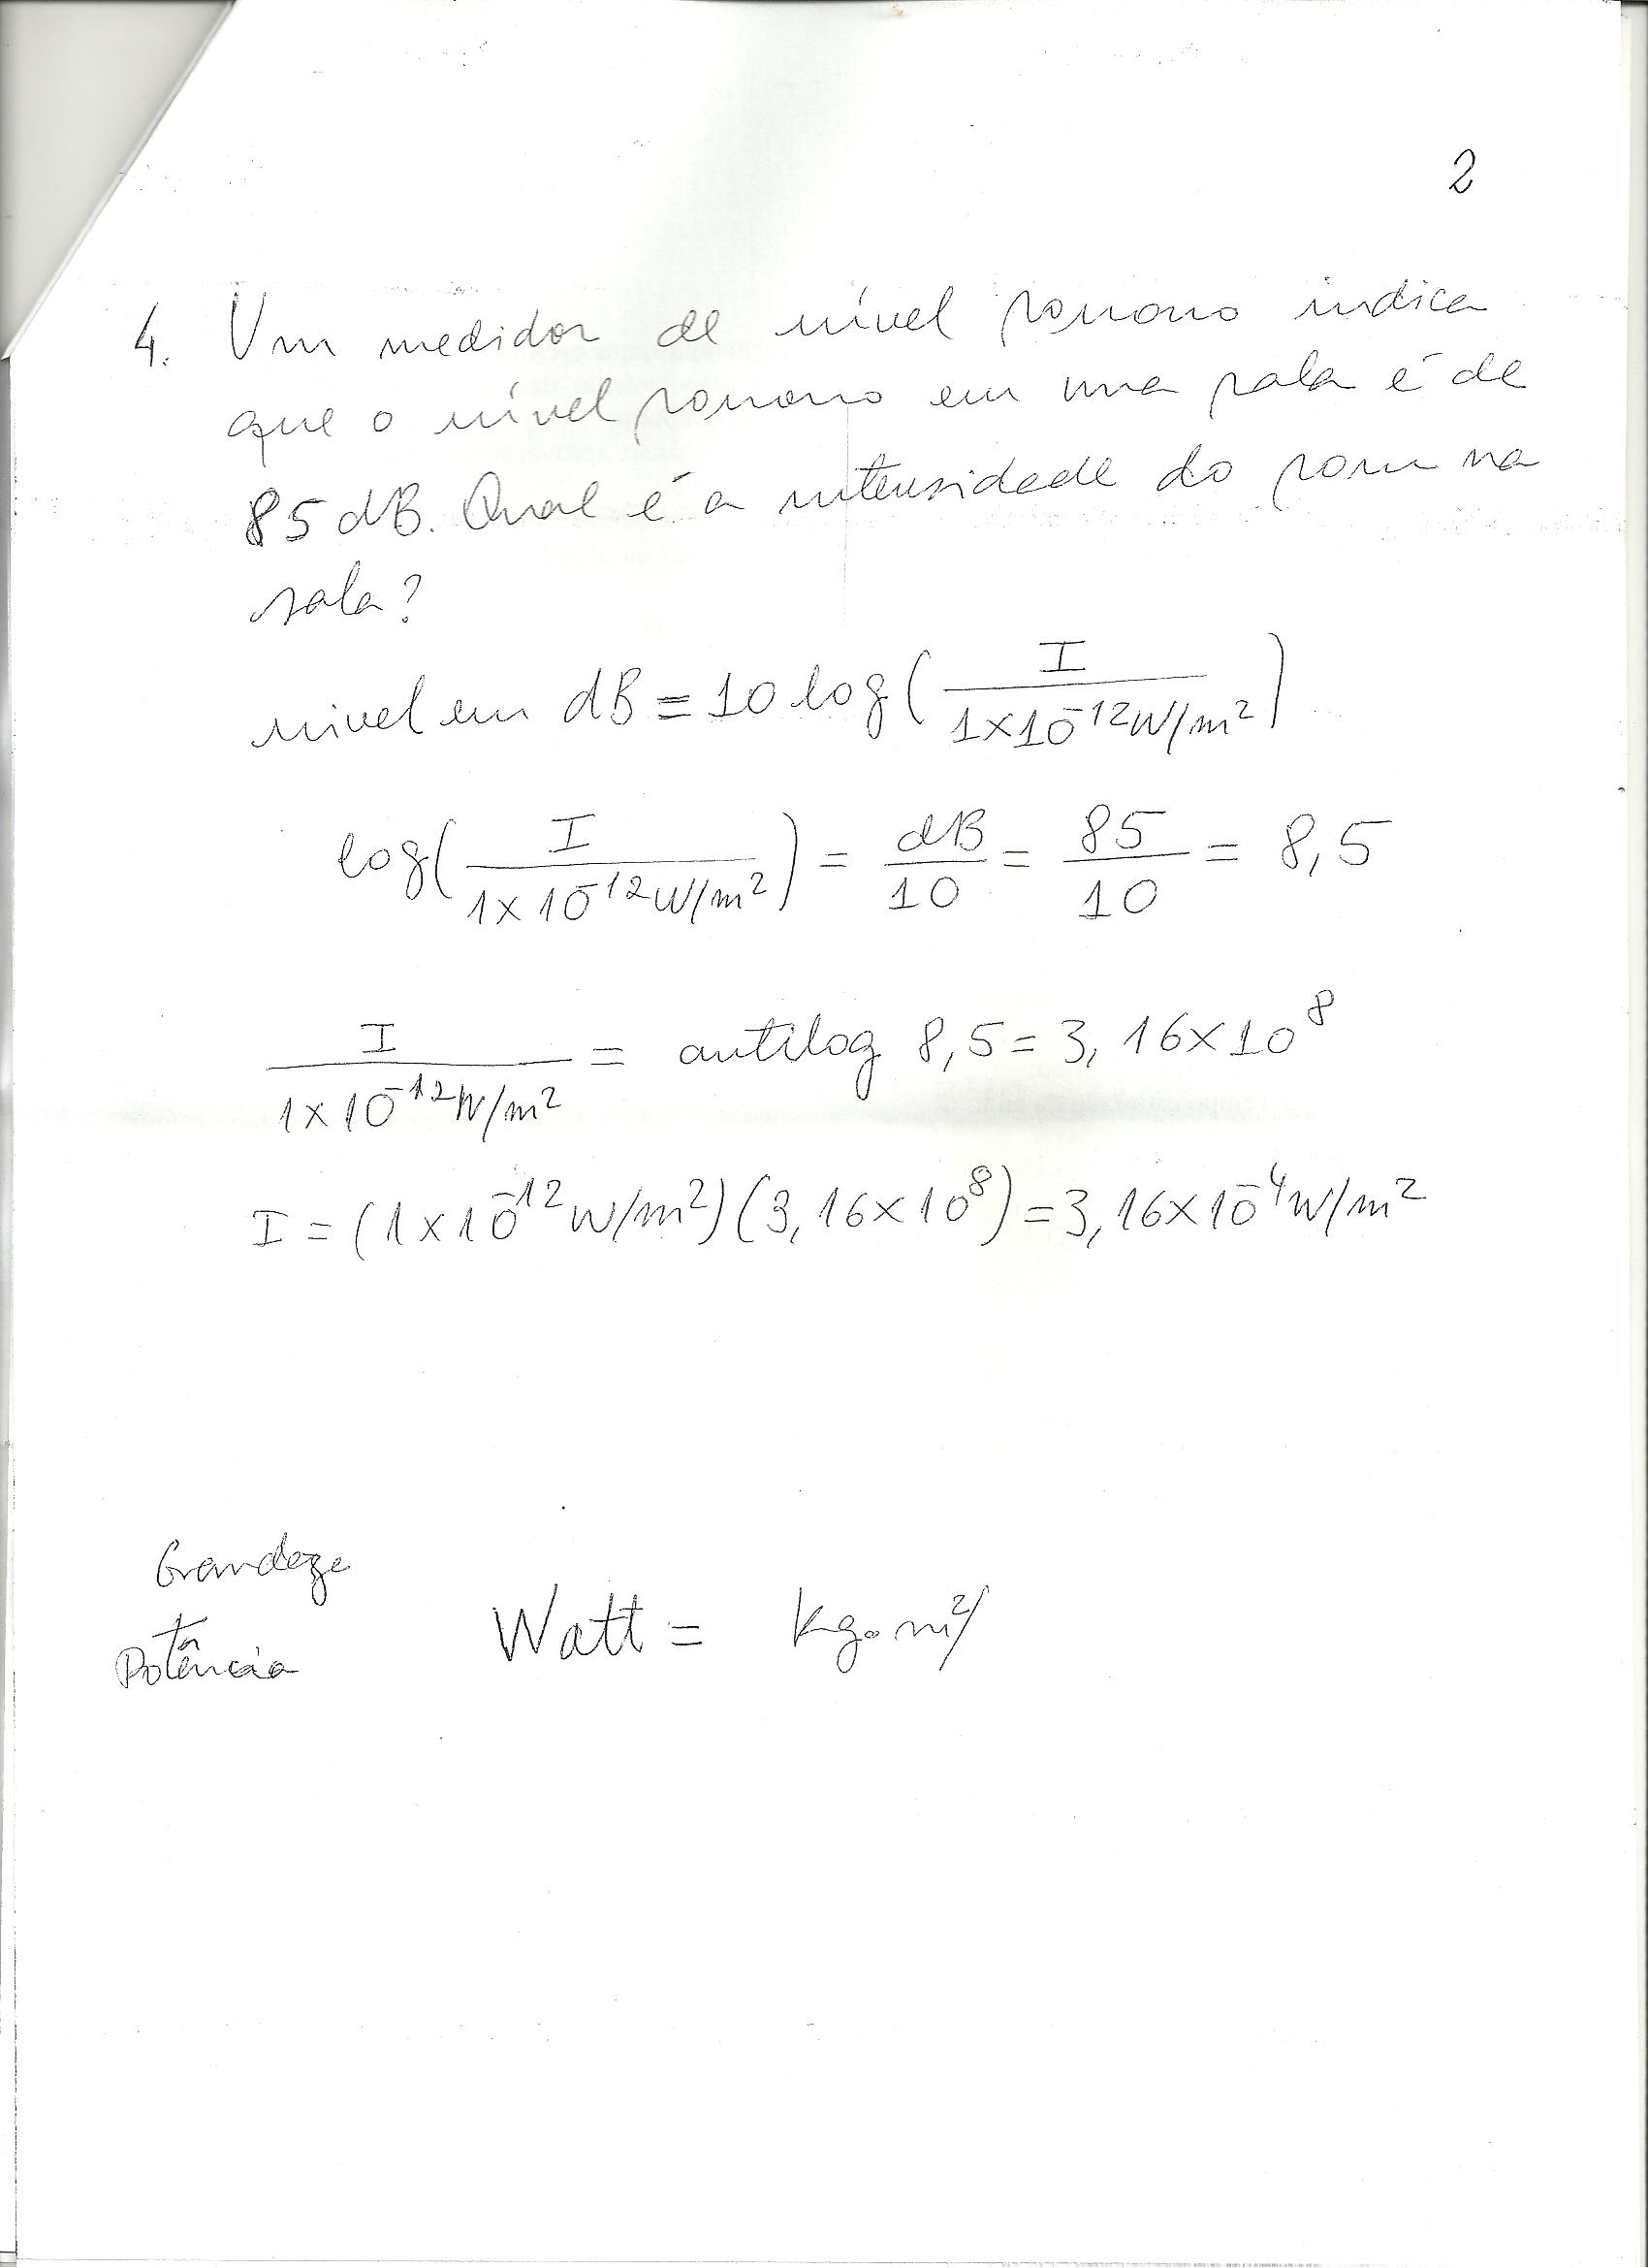 2
4. Um medidor de nível sonoro indica
que o nível sonoro em uma sala é de
85 dB. Qual é a intensidade do som na
sala?
nivel em dB = 10 log( I / 1x10^-12 W/m² )
log( I / 1x10^-12 W/m² ) = dB / 10 = 85 / 10 = 8,5
I / 1x10^-12 W/m² = antilog 8,5 = 3,16x10^8
I = (1x10^-12 W/m²)(3,16x10^8) = 3,16x10^-4 W/m²
Grandeza
Potência Watt = Kg.m²/